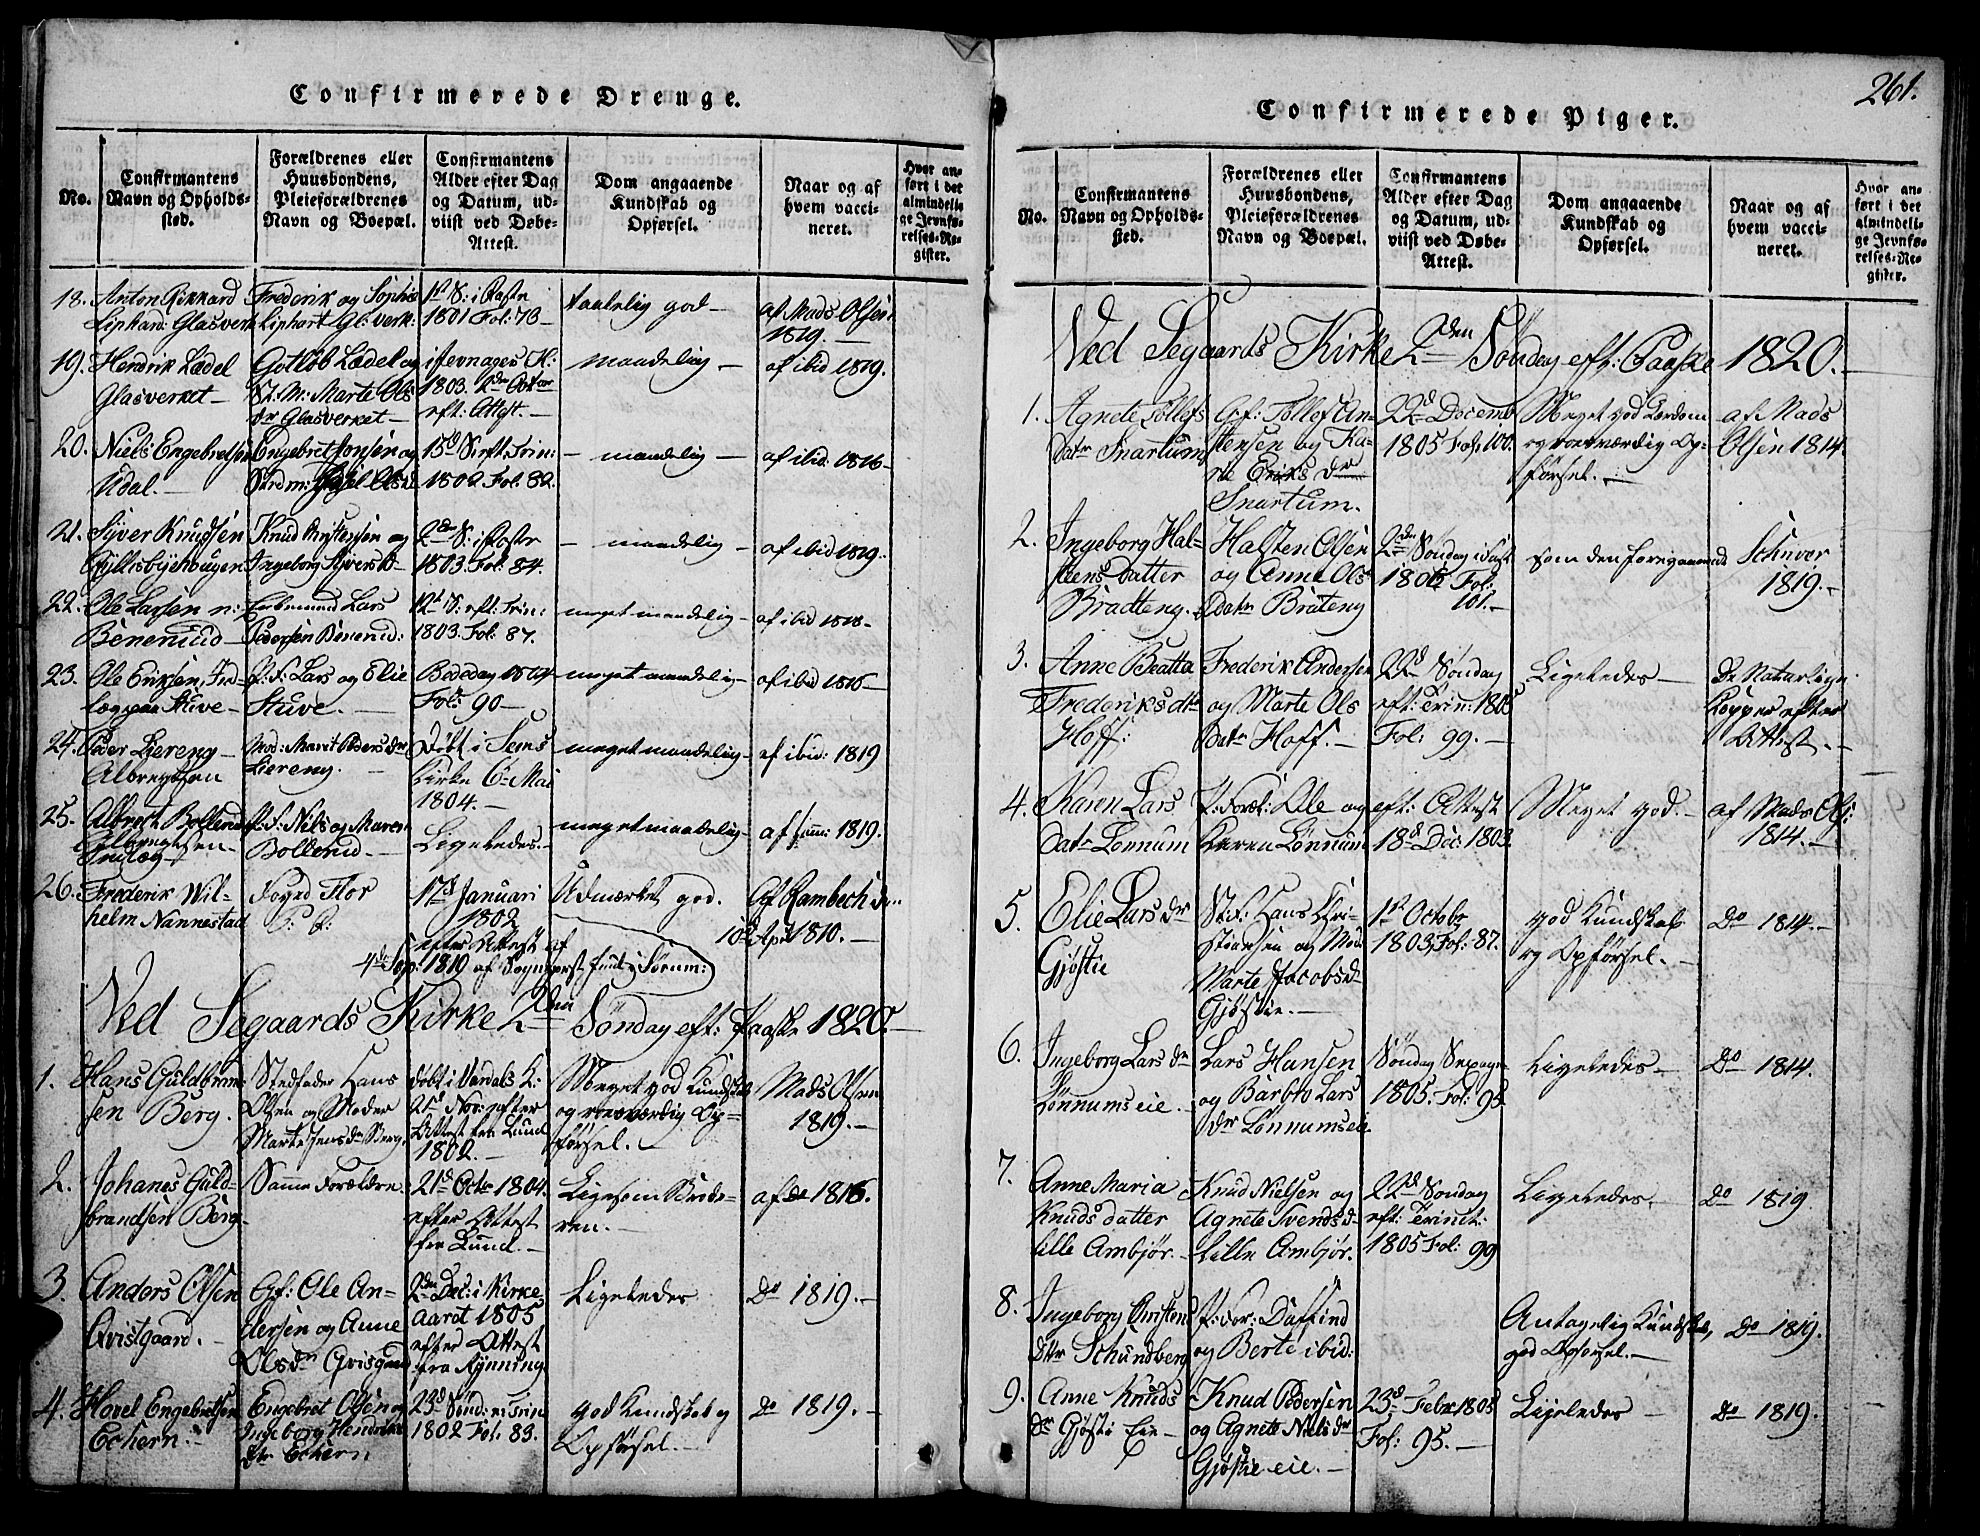 Confirmerede Drenge.
No.
Confirmantens
Navn og Opholds-
sted.
Forældrenes eller
Huusbondens,
Pleieforældrenes
Navn og Boepæl.
Confirmantens
Alder efter Dag
og Datum, ud-
viist ved Døbe-
Attest.
Dom angaaende
Kundskab og
Opførsel.
Naar og af
hvem vacci-
neret.
Hvor an-
ført i det
almindeli-
ge Jevnfø-
relses-Re-
gister.
18. Anton Rikkard
Liphard: Glasverk
Frederik og Sophie
Liphart Gl: verk:
1st S: i Faste
1801 Fol: 73 –
taalelig god –
af Mads Olsen
1819. –
19. Hendrik Lædel
Glasverket –
Gotlob Lædel og
St. M: Marte Ols
dr Glasverket –
i Jevnages K:
1803.
eft: Attest. –
maadelig –
af ibid 1819.
20. Niels Engebretsen
Udal. –
Engebret Jonsen og
15d S: eft: Trin:
1802 Fol: 82.
– maadelig –
af ibid. 1816 –
21. Syver Knudsen
Knud Christensen og
Ingeborg Syvers D –
2den S: i Faste
1803. Fol: 84.
– maadelig –
af ibid 1819.
22. Ole Larsen n:
Benerud –
Lars
Pedersen Benerud:
12t S: eft: Trin:
1803. Fol: 87.
meget maadelig –
af ibid 1818 –
23. Ole Eriksen, Ind-
læg paa Stuve –
P. F: Lars og Elie
Stuve. –
Bededag 1804
Fol: 90 –
meget maadelig –
af ibid 1816 –
24. Peder Liereng –
Albregtsen
Mod: Marit Peders dr
Liereng. –
Døbt i Sems
Kirke 6te Mai
1804. –
meget maadelig –
af ibid: 1819
25. Albregt Bollerud
Albregtsen –
Indlæg
P. F: Niels og Maren
Bollerud. –
Ligeledes. –
meget maadelig –
af samme: 1819.
26. Frederik Wil-
helm Nannestad
Foged Flor
P: F:
17d Januari
1802
efter Attest af
4de Sep: 1819 af Sognepræst Lund i Sørum:
Udmærket god.
Af Rambech d:
10de April 1810. –
Ved Segaards Kirke 2den Söndag eft: Paaske 1820. –
1. Hans Guldbrand-
sen Berg.
Stedfader Hans
Olsen og Moder
Marte Jens dr Berg.
döbt i Vardals K:
21d Nov: efter
Attest fra Lund
1802. –
Meget god Kundskab
og roesværdig Op-
førsel. –
Mads Olsen
1819. –
2. Johanes Guld-
brandsen Berg –
Samme Forældre.
21d Octr 1804.
efter Attest
fra Lund. –
Ligesom Brode-
ren. –
af do 1816.
3. Anders Olsen
Qvistgaard. –
Gf: Ole An-
dersen og Anne
Ols dr Qvisgaard
2den Dec: i Kirke-
aaret 1805
efter Attest
fra Rynning
Ligeledes
Do 1819. –
4. Hovel Engebretsen
Echern. –
Engebret Olsen og
Ingeborg Hendriks
dtr Echern
23d Sönd: e: Trin:
1802 Fol: 83.
god Kundskab og
Opførsel. –
Do 1819. –
261.
Confirmerede Piger.
No.
Confirmantens
Navn og Opholds-
sted.
Forældrenes eller
Huusbondens,
Pleieforældrenes
Navn og Boepæl.
Confirmantens
Alder efter Dag
og Datum, ud-
viist ved Døbe-
Attest.
Dom angaaende
Kundskab og
Opførsel.
Naar og af
hvem vacci-
neret.
Hvor an-
ført i det
almindeli-
ge Jevnfø-
relses-Re-
gister.
Ved Segaards Kirke 2den Söndag eft: Paaske 1820. –
1. Agnete Tollefs
Datr Snartum
Gf: Tollef An-
stensen og Ka-
ri Eriks dr
Snartum.
22d Decembr
1805 Fol: 100.
Meget god Lærdom
og roesværdig Op-
førsel. –
af Mads
Olsen 1814.
2. Ingeborg Hal-
stens Datter
Bradteng. –
Halsten Olsen
og Anne Ols
Datr Bräteng
2den Söndag i Fast
1806 Fol:
101. –
som den foregaaende
Schiver
1819. –
3. Anne Beatta
Frederiks dtr
Hoff:
Frederik Andersen
og Marte Ols
Datr Hoff. –
22d Söndag
eft: Trin: 1805
Fol: 99. –
Ligeledes –
De Naturlige
Kopper efter
Attest. –
4. Karen Lars
Datr Lønnum
P. Foræl: Ole og
Karen Lønnum
eft: Attest
18d Dec: 1803.
Meget god. –
af Mads Ols:
1814. –
5. Elie Lars dr
Gjøstie
St. F: Hans Chri-
stiansen og Mod:
Marte Jacobs d
Gjøstie. –
1st October
1803, Fol: 87.
god Kundskab
og Opførsel. –
Do 1814. –
6. Ingeborg Lars dr
Lønnums eie. –
Lars Hansen
og Barbro Lars
dr Lønnums eie
Söndag Sexages:
1805. Fol: 95.
Ligeledes –
Do 1814.
7. Anne Maria
Knuds datter
Lille Ambjør. –
Knud Nielsen og
Agnete Svends d
Lille Ambjør.
22d Söndag
eft: Trinit:
1805 Fol: 99
Ligeledes.
Do 1819.
8. Ingeborg Christens
dtr Schundberg
P. For: Daffind
og Berte ibid:
Antagelig Kundskab,
god Opførsel. –
Do 1819.
9. Anne Knuds
dr Gjøsti Eie –
Knud Pedersen
og Agnete Niels dr
Gjøstie eie. –
23d Febr 1805
Fol: 95. –
Ligeledes –
Do 1819.